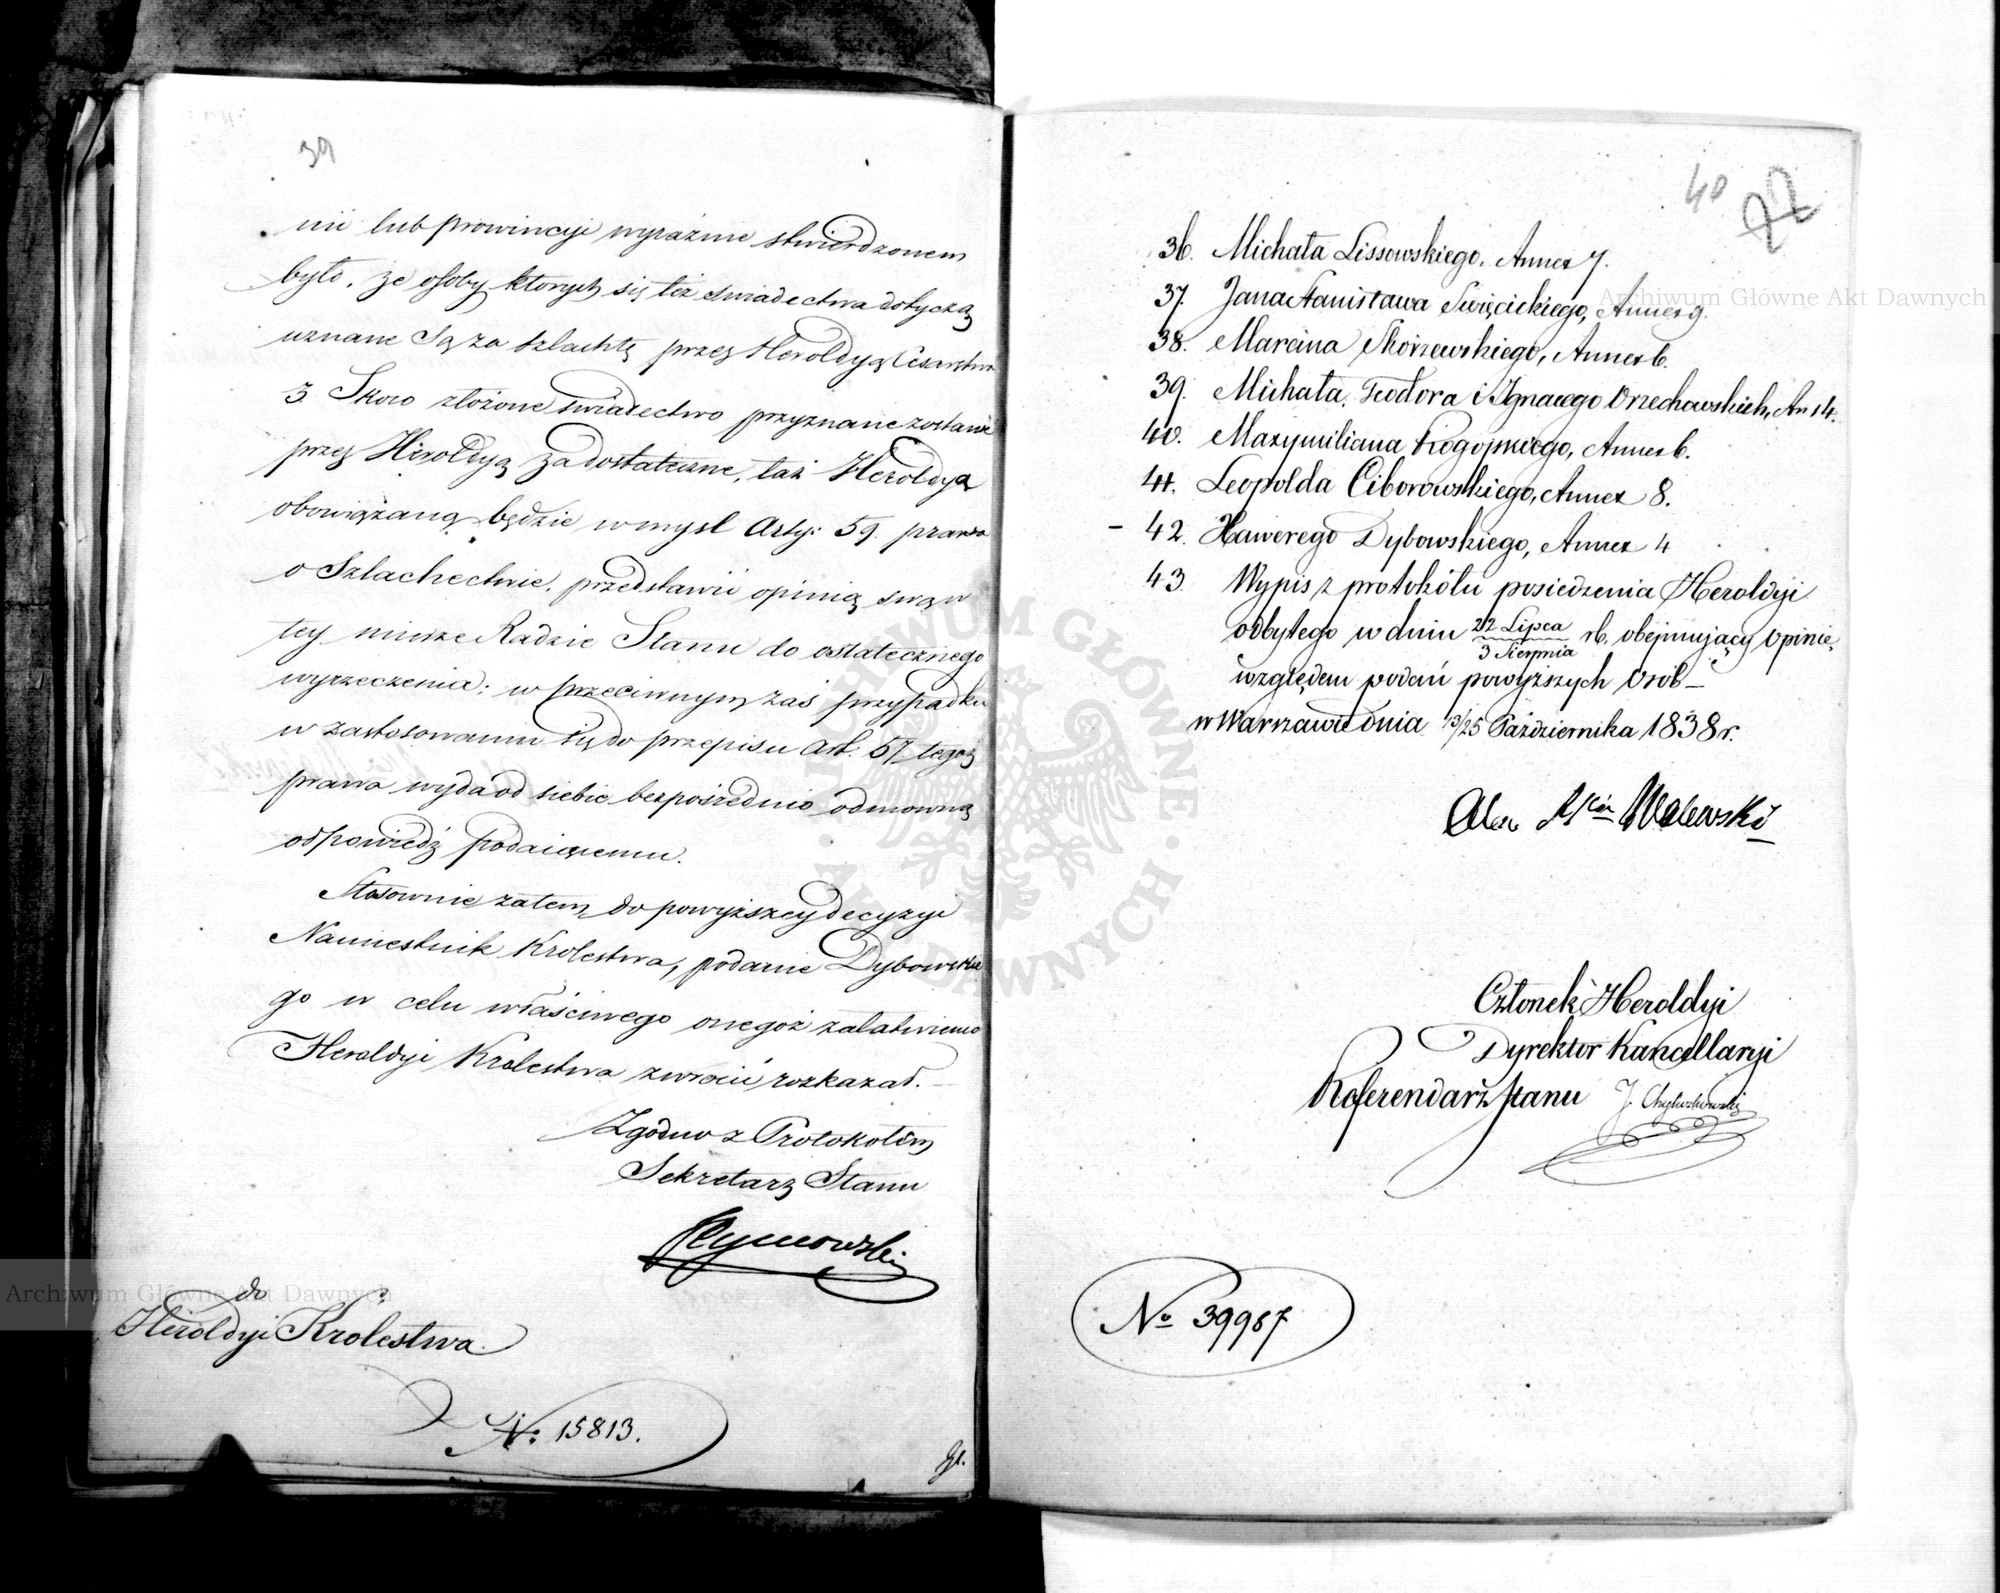 39
nii lub prowincyi wyraźnie stwierdzonem
było, że osoby których się też swiadectwa dotyczą
uznane są za szlachtę przez Heroldyą Cesarstwa
3. Skoro złożone świadectwo przyznane zostanie
przez Heroldyą za dostateczne, taż Heroldya
obowiązaną będzie w mysl Arty: 59. prawa
o Szlachectwie, przedstawić opinią swą w
tey mierze Radzie Stanu do ostatecznego
wyrzeczenia; w przeciwnym zaś przypadku
w zastosowaniu się do przepisu Art. 57 tegoż
prawa wyda od siebie bezpośrednio odmowną
odpowiedź podaiącemu.
Stosownie zatem do powyższey decyzyi
Namiestnik Krolestwa, podanie Dybowskie
go w celu właściwego onegoż załatwienia
Heroldyi Krolestwa zwrócić rozkazał.
Zgodno z Protokołem
Sekretarz Stanu
Tymowski
do
Heroldyi Krolestwa.
No: 15813.
40
36. Michała Lissowskiego, Annex 7.
37. Jana Stanisława Swięcickiego, Annex 9.
38. Marcina Skórzewskiego, Annex 6.
39. Michała, Teodora i Ignacego Orzechowskich, An: 14.
40. Maxymiliana Annex 6.
41. Leopolda Ciborowskiego, Annex 8.
- 42. Xawerego Dybowskiego, Annex 4
43. Wypis z protokółu posiedzenia Heroldyi
odbytego w dniu 22 Lipca / 3 Sierpnia rb. obejmujący Opinię
względem podań powyższych Osób —
w Warszawie dnia 13/25 Października 1838 r.
Alex Walewski
Członek Heroldyi
Dyrektor Kancellaryi
Referendarz Stanu
No 39987
Archiwum Główne Akt Dawnych
Archiwum Główne Akt Dawnych
ARCHIWUM GŁÓWNE · AKT DAWNYCH ·